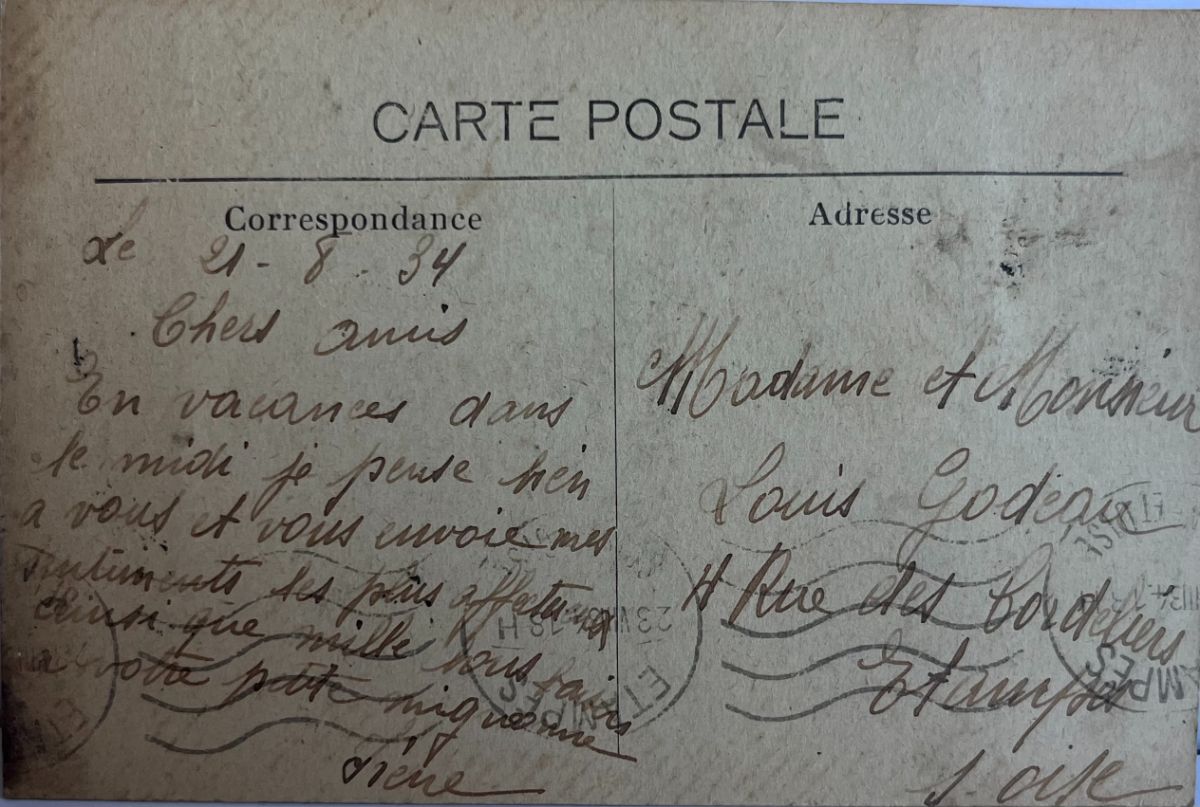 CARTE POSTALE
Correspondance
Le 21-8-34
Chers amis
En vacances dans
le midi je pense bien
a vous et vous envoie mes
sentiments les plus affectueux
ainsi que mille bons baisers
a votre petite mignonne
Irène
Adresse
Madame et Monsieur
Louis Godeau
4 Rue des Cordeliers
Etampes
S. oise
ETAMPES
18 H
23 VIII
ETAMPES